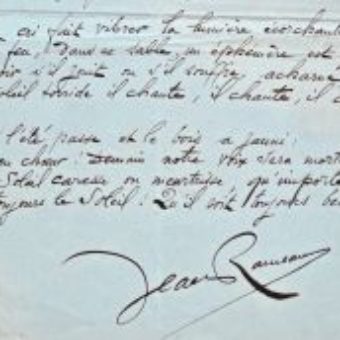 cri fait vibrer la lumière écorchante
feu, Dans ce sable, un éphémère est
s'il jouit ou s'il souffre, acharné
soleil torride il chante, il chante, il c
l'été passe et le bois a jauni:
chœur: Demain notre voix sera mort
Soleil caresse ou meurtrisse, qu'importe
toujours le Soleil! Qu'il soit toujours bé
Jean Rameau